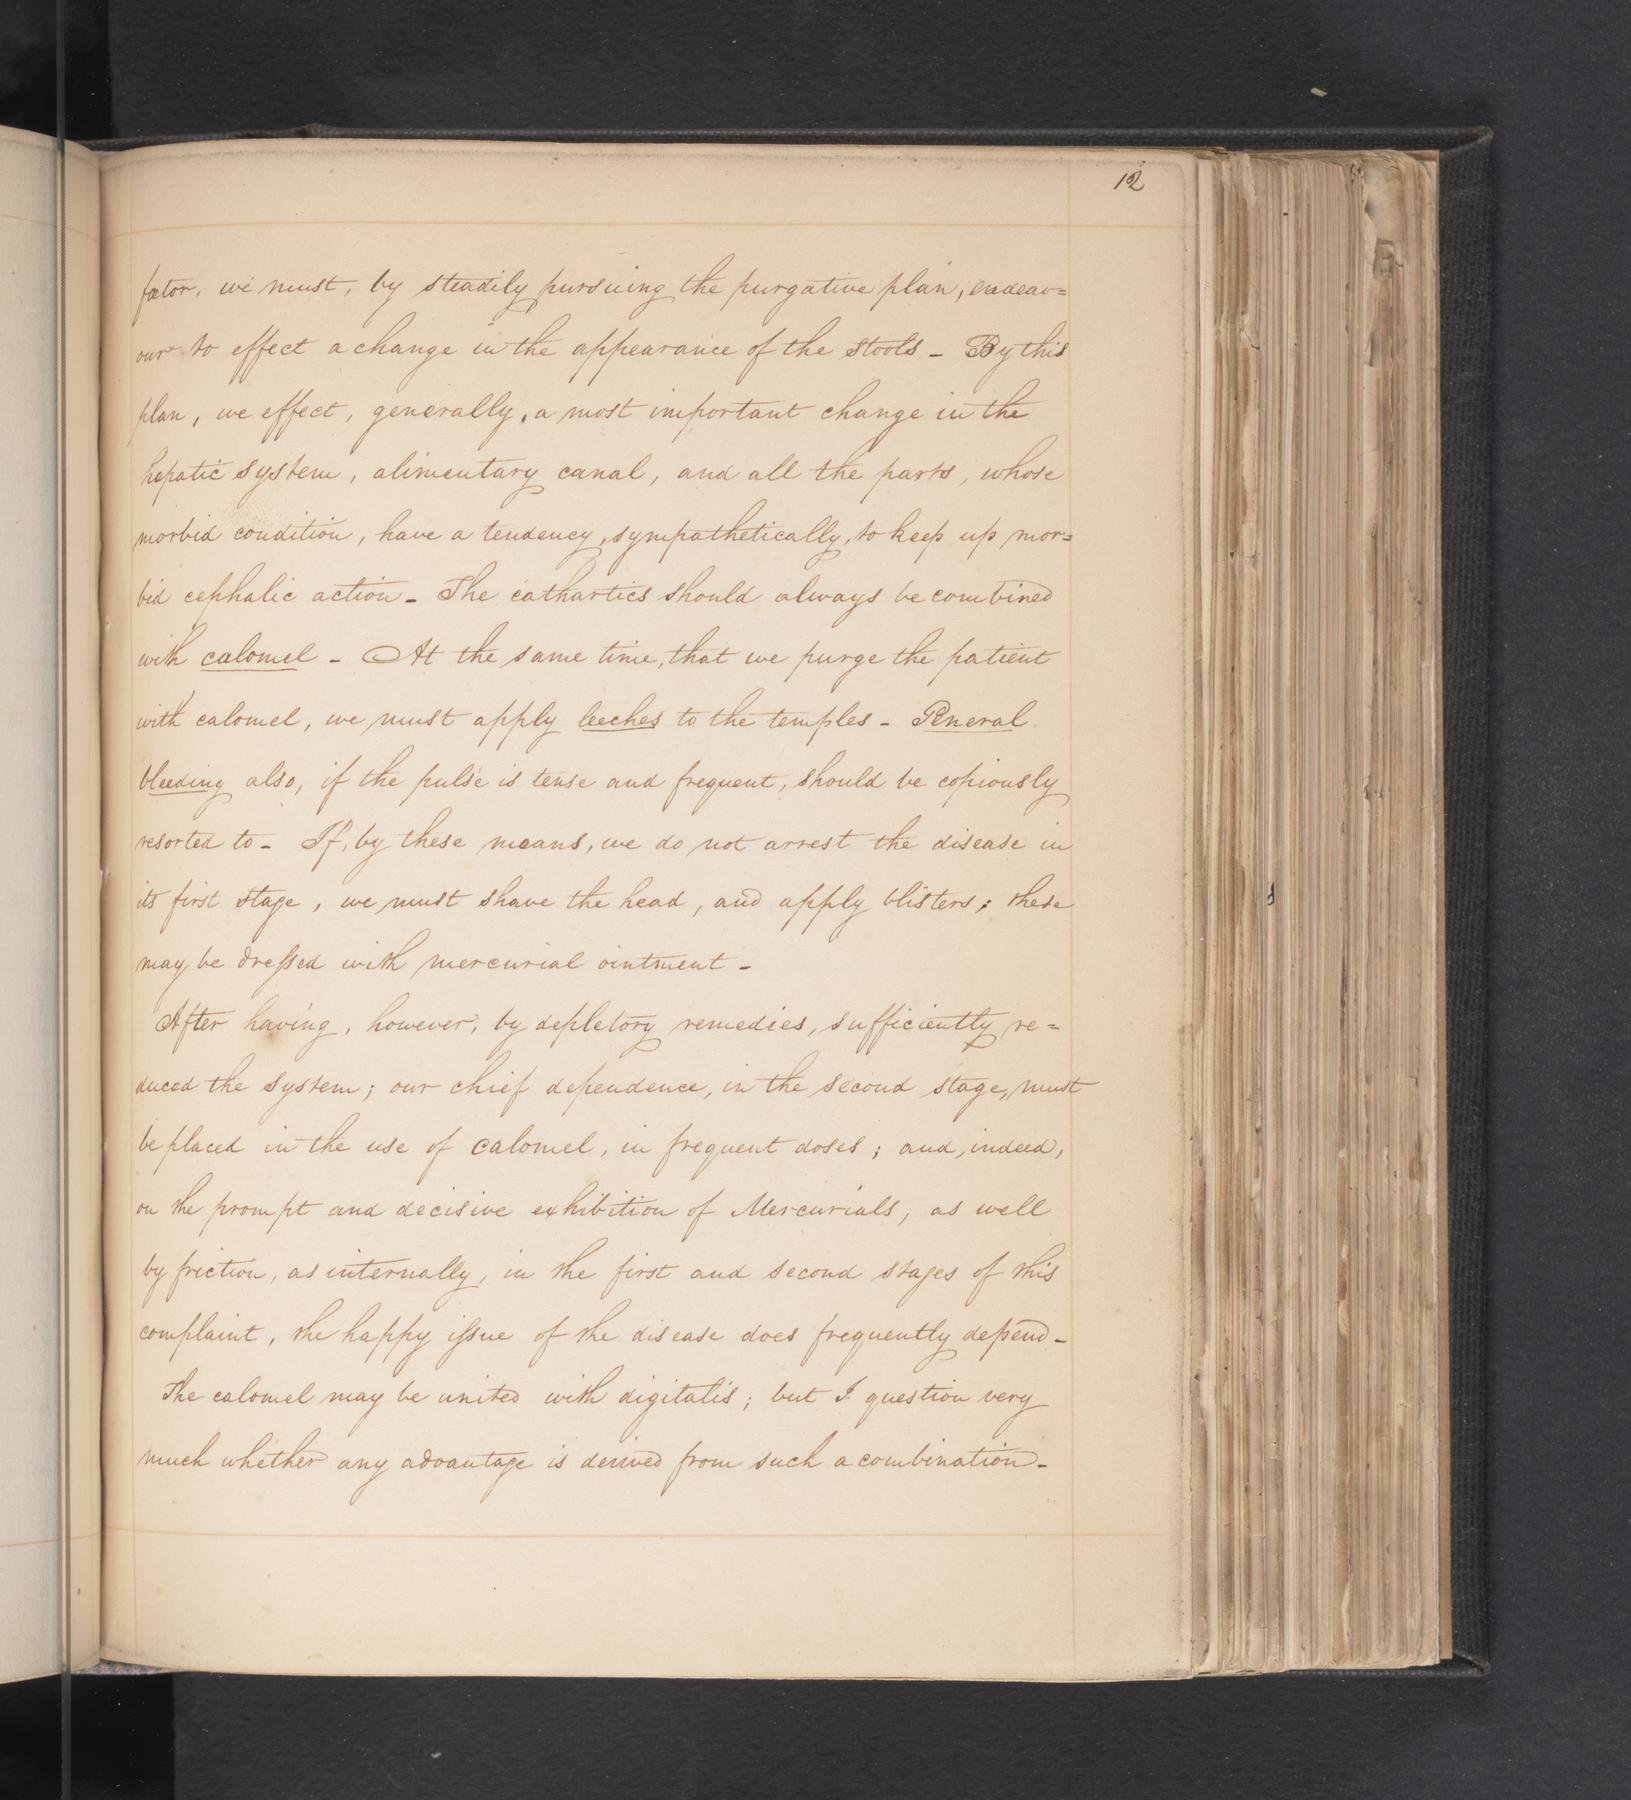 12
fœtor, we must, by steadily pursuing the purgative plan, endeav=
our to effect a change in the appearance of the stools - By this
plan, we effect, generally, a most important change in the
hepatic system, alimentary canal, and all the parts, whose
morbid condition, have a tendency, sympathetically, to keep up mor=
bid cephalic action - The cathartics should always be combined
with calomel - At the same time, that we purge the patient
with calomel, we must apply leeches to the temples - General
bleeding also, if the pulse is tense and frequent, should be copiously
resorted to - If, by these means, we do not arrest the disease in
its first stage, we must shave the head, and apply blisters; these
may be dressed with mercurial ointment -
After having, however, by depletory remedies, sufficiently re=
duced the system; our chief dependence, in the second stage, must
be placed in the use of calomel, in frequent doses; and, indeed,
on the prompt and decisive exhibition of Mercurials, as well
by friction, as internally, in the first and second stages of this
complaint, the happy issue of the disease does frequently depend -
The calomel may be united with digitalis; but I question very
much whether any advantage is derived from such a combination -